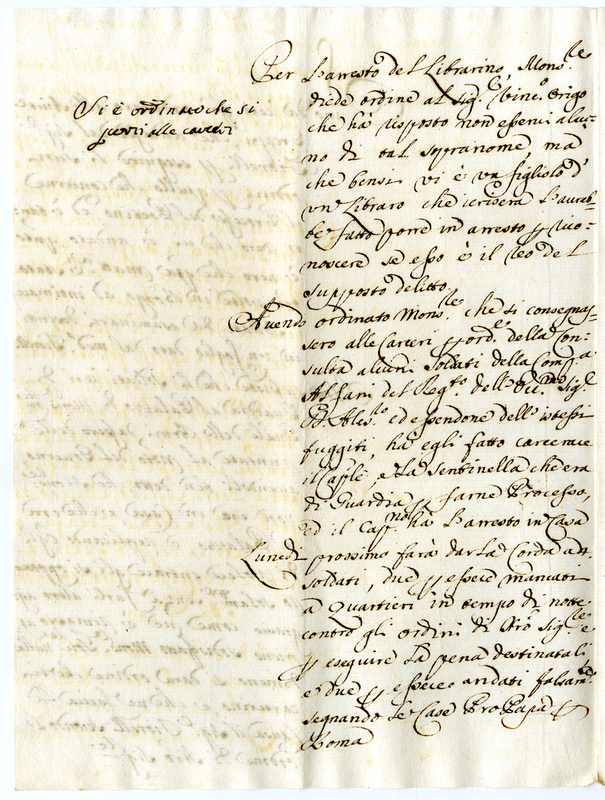 Si è ordinato che si
porti alle carceri
Per l'arresto del Librarino, Mons.re
diede ordine al Sig.r Vinc.o Origo
che hà risposto non esservi alcu-
no di tal sopranome, mà
che bensi vi è un figliolo d'
un Libraro che
fatto porre in arresto p rico-
noscere se esso è il Reo del
supposto delitto.
Avendo ordinato Mons.re che si consegnas-
sero alle Carceri p ord.e della Con-
sulta alcuni soldati della Comp.a
Alfani del Reg.to dell' Ecc.mo Sig.r
D. Ales.o ed essendone dell' istessi
fuggiti, ha egli fatto carcerare
il Cap.le, e la Sentinella che era
di Guardia p farne Processo,
ed il Cap.no hà l'arresto in Casa
Lunedi prossimo farà dar la Corda a 4
soldati, due p essere mancati
a Quartieri in tempo di notte
contro gli ordini di N'ro Sig.re e
p eseguire la pena destinatali
e due p essere andati falsam.te
segnando le Case Pro Papa
Roma